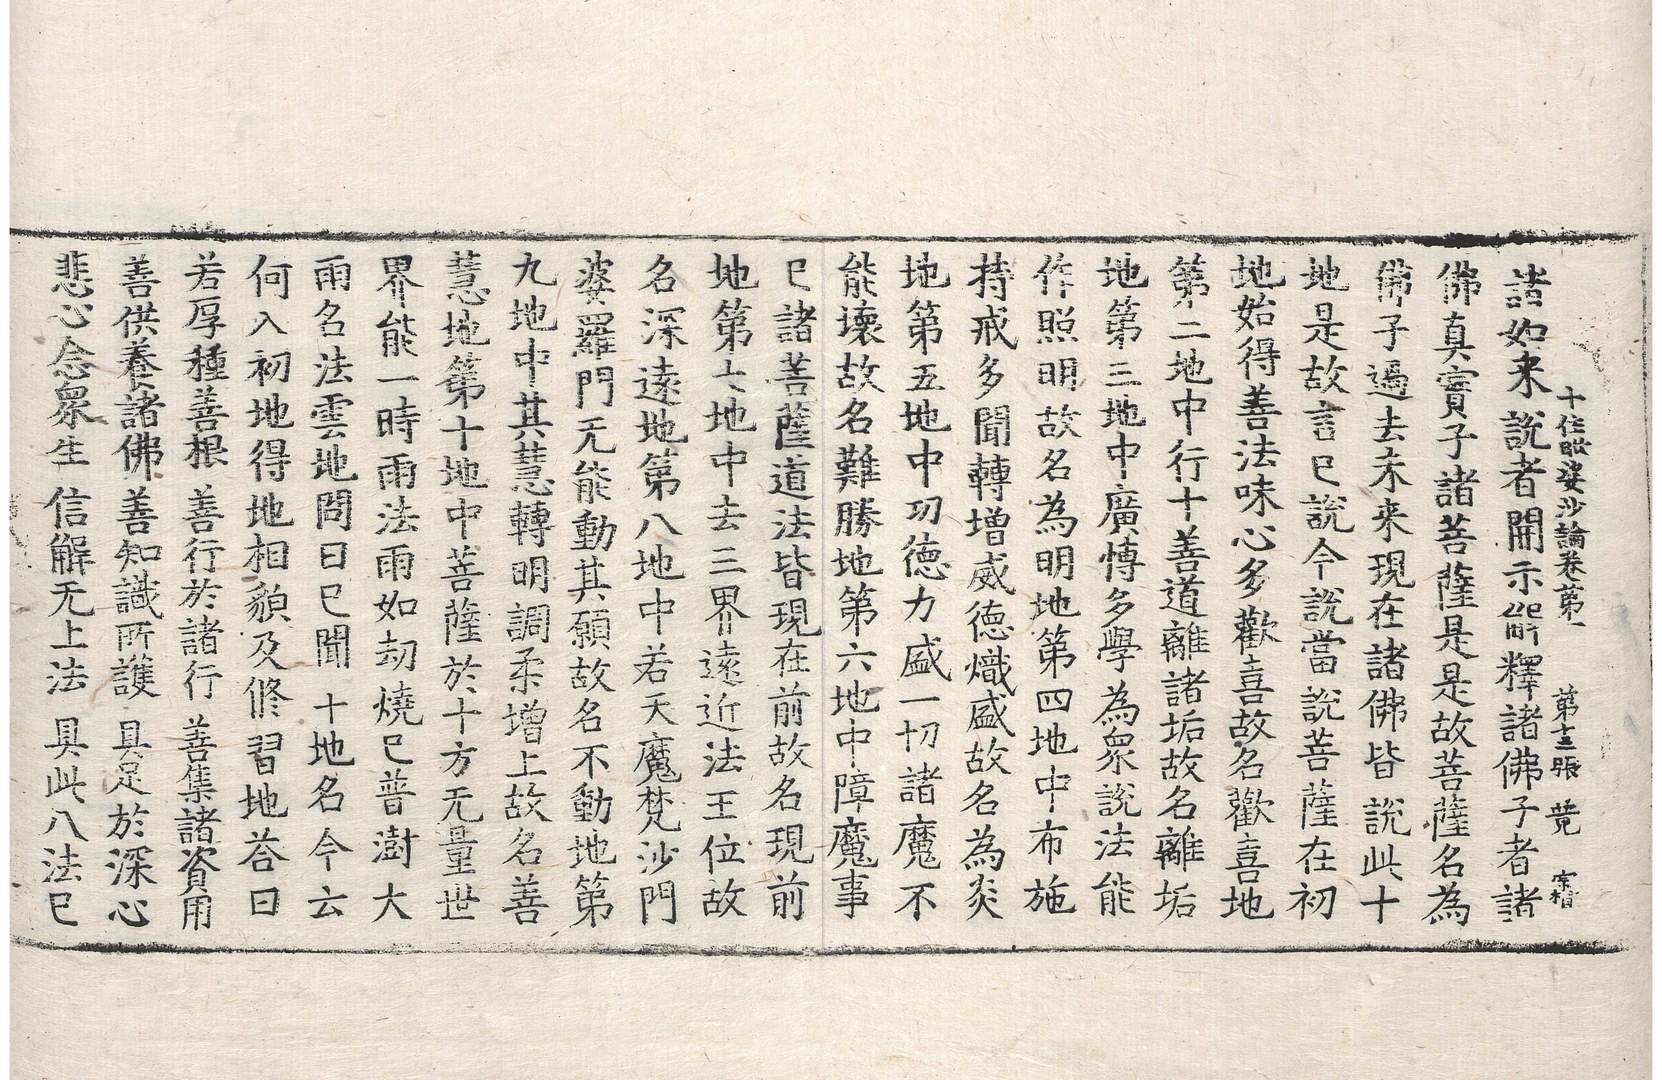 十住毗婆沙論卷第一 第十三張 競 宗楷
諸如来說者開示解釋諸佛子者諸
佛真實子諸菩薩是是故菩薩名為
佛子過去未来現在諸佛皆說此十
地是故言已說今說當說菩薩在初
地始得善法味心多歡喜故名歡喜地
第二地中行十善道離諸垢故名離垢
地第三地中廣愽多學為衆說法能
作照明故名為明地第四地中布施
持戒多聞轉增威德熾盛故名為炎
地第五地中功德力盛一切諸魔不
能壞故名難勝地第六地中障魔事
已諸菩薩道法皆現在前故名現前
地第七地中去三界遠近法王位故
名深遠地第八地中若天魔梵沙門
婆羅門无能動其願故名不動地第
九地中其慧轉明調柔增上故名善
慧地第十地中菩薩於十方无量世
界能一時雨法雨如劫燒已普澍大
雨名法雲地問曰已聞十地名今云
何入初地得地相貌及修習地荅曰
若厚種善根 善行於諸行 善集諸資用
善供養諸佛 善知識所護 具足於深心
悲心念衆生 信解无上法 具此八法已